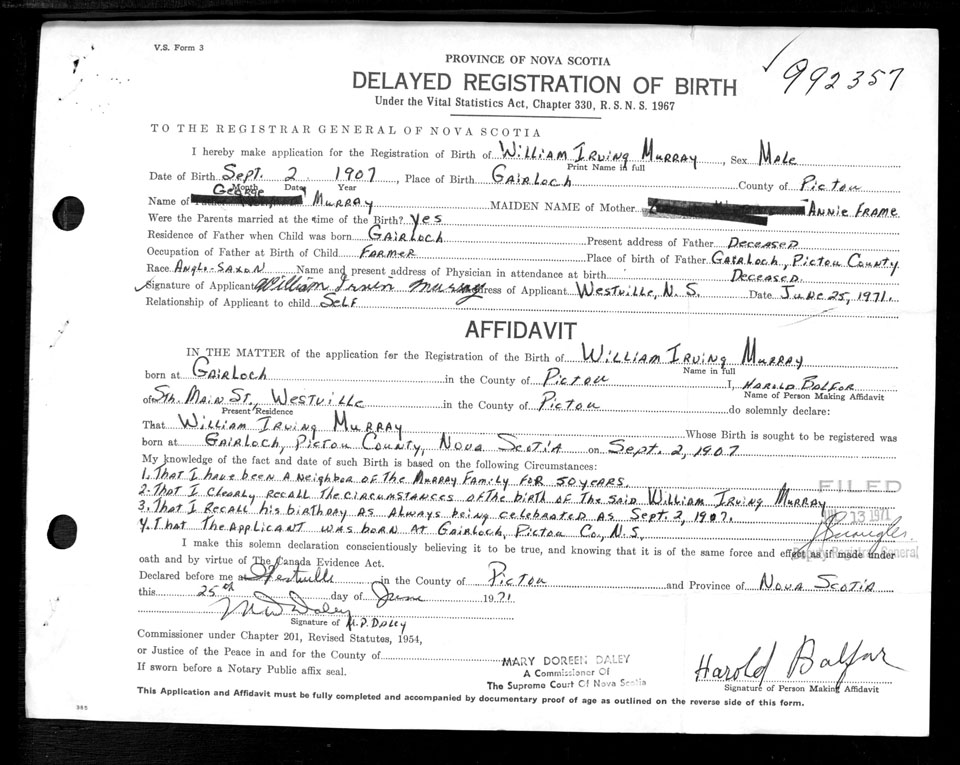 V.S. Form 3
PROVINCE OF NOVA SCOTIA
992357
DELAYED REGISTRATION OF BIRTH
Under the Vital Statistics Act, Chapter 330, R. S. N. S. 1967
TO THE REGISTRAR GENERAL OF NOVA SCOTIA
I hereby make application for the Registration of Birth of William Irving Murray, Sex Male
Print Name in full
Date of Birth Sept. 2 1907, Place of Birth Gairloch County of Pictou
Month Date Year
George
Name of Murray MAIDEN NAME of Mother Annie Frame
Were the Parents married at the time of the Birth? Yes
Residence of Father when Child was born Gairloch Present address of Father Deceased
Occupation of Father at Birth of Child Farmer Place of birth of Father Gairloch, Pictou County
Race Anglo-Saxon Name and present address of Physician in attendance at birth Deceased
Signature of Applicant William Irvin Murray Address of Applicant Westville, N.S. Date June 25, 1971.
Relationship of Applicant to child Self
AFFIDAVIT
IN THE MATTER of the application for the Registration of the Birth of William Irving Murray
Name in full
born at Gairloch in the County of Pictou I, Harold Balfor
Name of Person Making Affidavit
of Sth. Main St., Westville in the County of Pictou do solemnly declare:
Present Residence
That William Irving Murray Whose Birth is sought to be registered was
born at Gairloch, Pictou County, Nova Scotia on Sept. 2, 1907
My knowledge of the fact and date of such Birth is based on the following Circumstances:
1. That I have been a neighbor of the Murray Family for 50 years.
2. That I clearly recall the circumstances of the birth of the said William Irving Murray
FILED
3. That I recall his birthday as always being celebrated as Sept. 2, 1907.
13 1971
4. That the applicant was born at Gairloch, Pictou Co., N.S.
I make this solemn declaration conscientiously believing it to be true, and knowing that it is of the same force and effect as if made under
Deputy Registrar General
oath and by virtue of The Canada Evidence Act.
Declared before me at Westville in the County of Pictou and Province of Nova Scotia
this 25th day of June 1971
M D Daley
Signature of M.D. Daley
Commissioner under Chapter 201, Revised Statutes, 1954,
or Justice of the Peace in and for the County of
If sworn before a Notary Public affix seal.
MARY DOREEN DALEY
A Commissioner Of
The Supreme Court Of Nova Scotia
Harold Balfor
Signature of Person Making Affidavit
This Application and Affidavit must be fully completed and accompanied by documentary proof of age as outlined on the reverse side of this form.